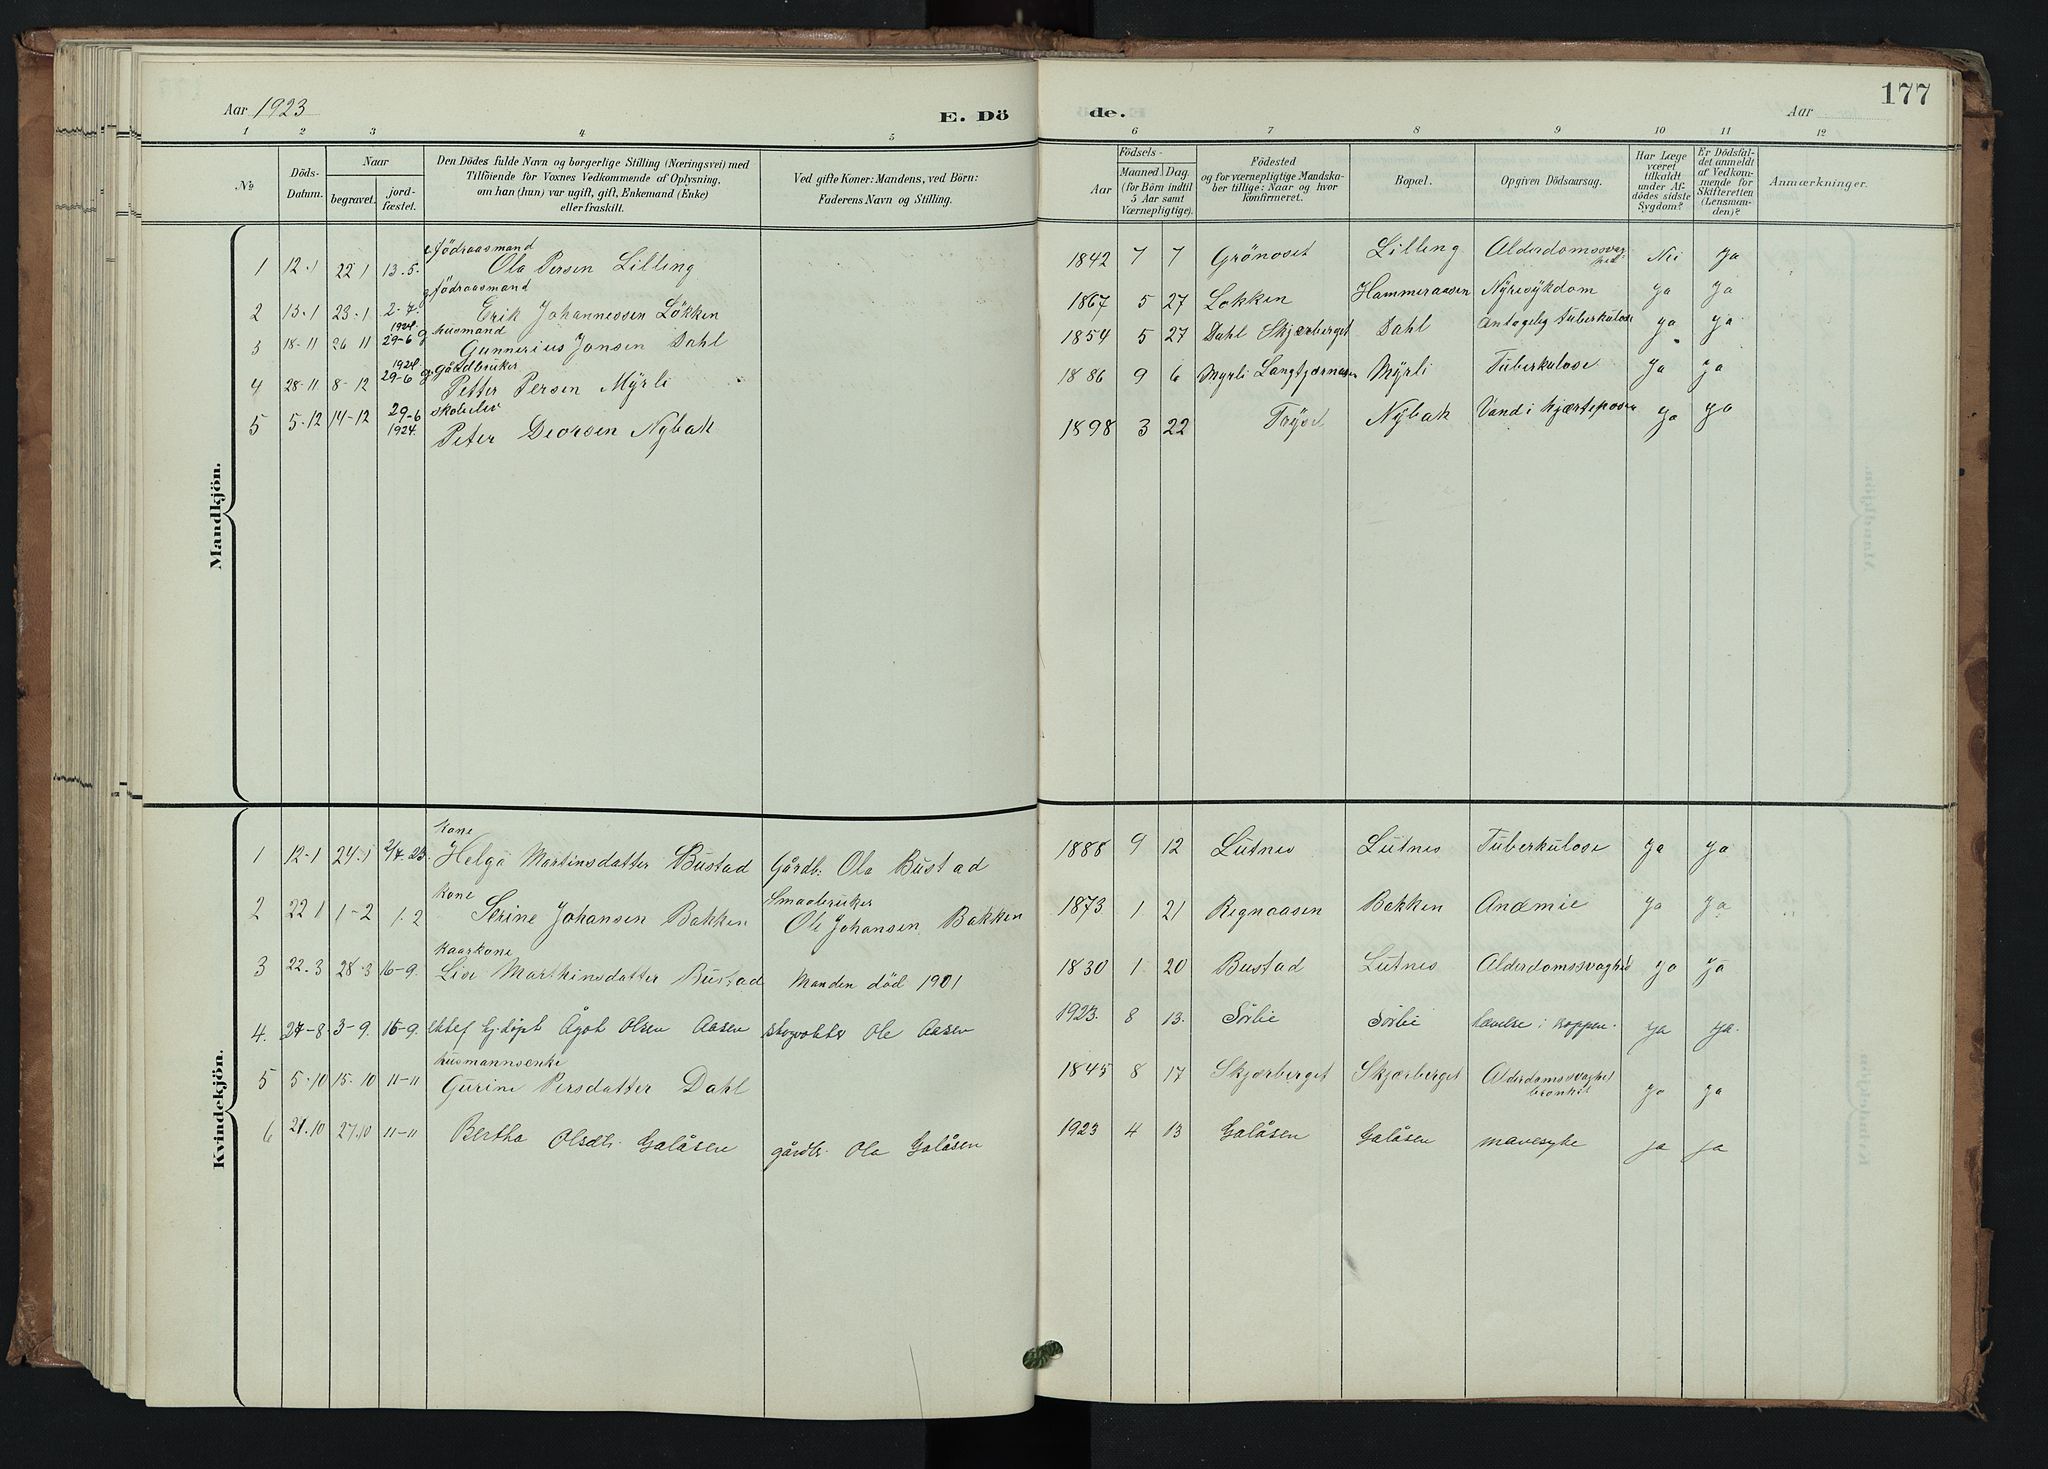 Aar 1923
E. Dö
de.
Aar
177
1 2 3 4 5 6 7 8 9 10 11 12
№
Döds-Datum.
Naar
begravet.
jord-fæstet.
Den Dödes fulde Navn og borgerlige Stilling (Næringsvei) med
Tilföiende for Voxnes Vedkommende af Oplysning,
om han (hun) var ugift, gift, Enkemand (Enke)
eller fraskilt.
Ved gifte Koner: Mandens, ved Börn:
Faderens Navn og Stilling.
Födsels-
Aar
Maaned Dag.
(for Börn indtil
5 Aar samt
Værnepligtige).
Födested
og for værnepligtige Mandska-
ber tillige: Naar og hvor
konfirmeret.
Bopæl.
Opgiven Dödsaarsag.
Har Læge
været
tilkaldt
under Af-
dödes sidste
Sygdom?
Er Dödsfal-
det anmeldt
af Vedkom-
mende for
Skifteretten
(Lensman-
den)?
Anmærkninger.
Mandkjön.
födraasmand
1 12-1 22 1 13-5. Ola Persen Lilleng 1842 7 7 Grönoset Lilleng Alderdomssvaghed Nei Ja
födraasmand
2 13-1 23-1 2-7. Erik Johannessen Lökken 1867 5 27 Lokken Hammeraasen Nyresykdom Ja Ja
1924 husmand
3 18-11 26 11 29-6 g Gunnerius Jonsen Dahl 1854 5 27 Dahl Skjærberget Dahl Antagelig Tuberkulose ja ja
1924 gårdbruker
4 28-11 8-12 29-6 g Petter Persen Myrli 1886 9 6 Myrli Langtjærnåsen Myrli Tuberkulose Ja Ja
skoleelev
5 5-12 14-12 29-6 1924. Peter Deorsen Nybak 1898 3 22 Trysil Nybak Vand i hjærteposen Ja Ja
Kvindekjön.
kone
1 12-1 24-1 2/7.23. Helga Martinsdatter Bustad Gårdb. Ola Bustad 1888 9 12 Lutnes Lutnes Tuberkulose Ja Ja
kone Smaabruker
2 22 1 1-2 1-2 Serine Johansen Bakken Ole Johansen Bakken 1873 1 21 Regnaasen Bakken Anæmie Ja Ja
Kaarkone
3 22-3 28-3 16-9. Lise Marthinsdatter Bustad Manden död 1901 1830 1 20 Bustad Lutnes Alderdomssvaghed Ja Ja
4. 27-8 3-9. 16-9. ektef ej döpt Ågot Olsen Aasen Ole Aasen 1923. 8 13. Sörlie Sörlie hævelse i kroppen. Ja Ja.
husmannsenke
5 5-10 15-10 11-11 Gurine Persdatter Dahl 1845 8 17 Skjærberget Skjærberget Alderdomssvaghet bronkit Ja Ja
6 21.10 27.10 11-11 Bertha Olsdtr. Galåsen gårdbr. Ola Galåsen 1923 4 13 Galåsen Galåsen mavesyke Ja Ja